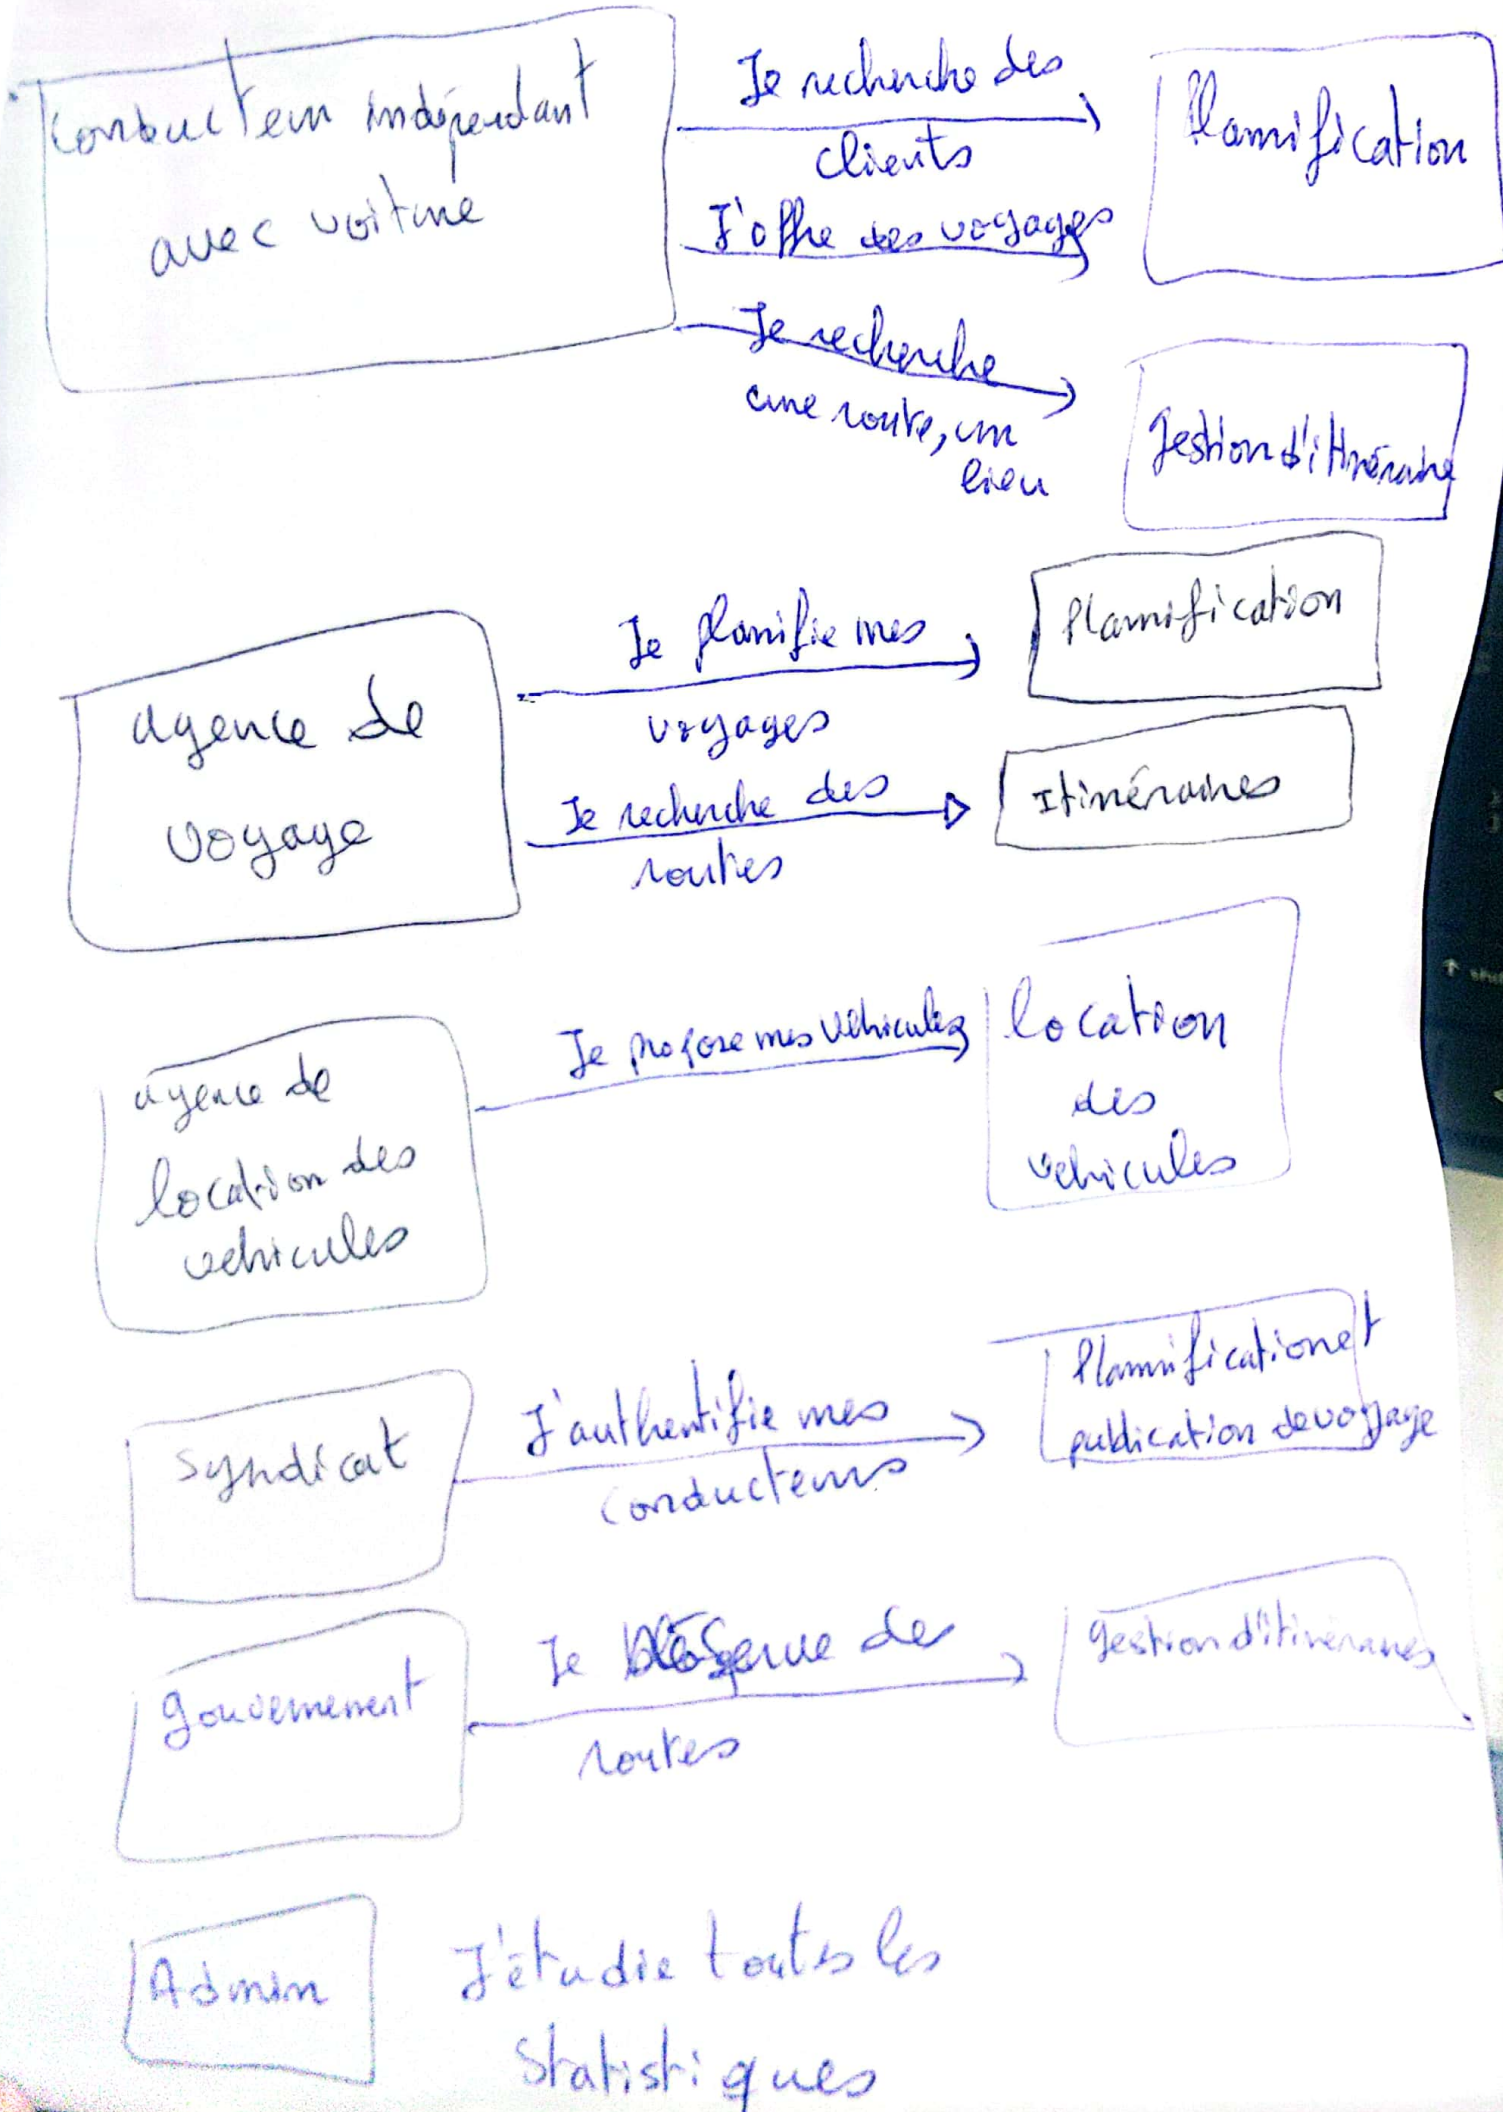 Conducteur indépendant
avec voiture
Je recherche des
clients
J'offre des voyages
Planification
Je recherche
une route, un
lieu
gestion d'itinéraire
agence de
voyage
Je planifie mes
voyages
Planification
Je recherche des
routes
Itinéraires
agence de
location des
vehicules
Je propose mes véhicules
location
des
vehicules
Syndicat
J'authentifie mes
conducteurs
Planification et
publication de voyage
gouvernement
Je des
routes
gestion d'itineraires
Admin
J'étudie toutes les
statistiques